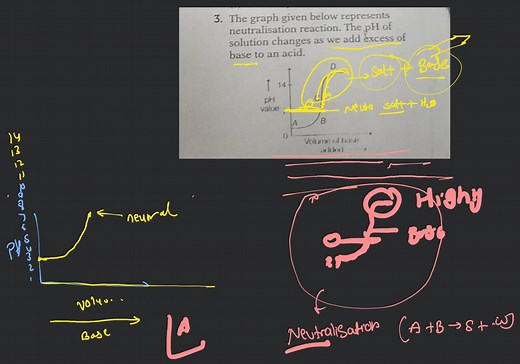 3. The graph given below represents
neutralisation reaction. The pH of
solution changes as we add excess of
base to an acid.
D
Salt + Base
14
pH
value
C
neutr salt + H2O
A
B
0
Volume of base
added
14
13
12
11
7
6
5
4
3
2
1
PH
neutral
Base
A
Highly
Base
Neutralisation (A + B → S + W)